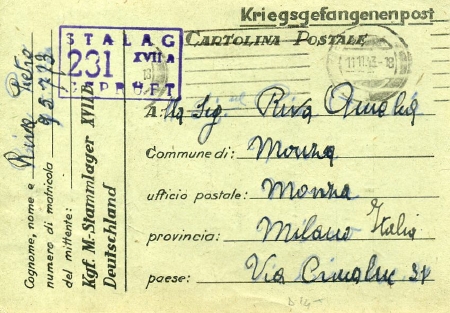 Kriegsgefangenenpost
CARTOLINA POSTALE
STALAG
XVII A
231
GEPRÜFT
11.11.43-18
Alla Sig. Riva
Commune di: Monza
ufficio postale: Monza
provincia: Milano Italia
paese: Via
Cognome, nome e Riva Pietro
numero di matricola
del mittente:
Kgf. M.-Stammlager XVII A
Deutschland